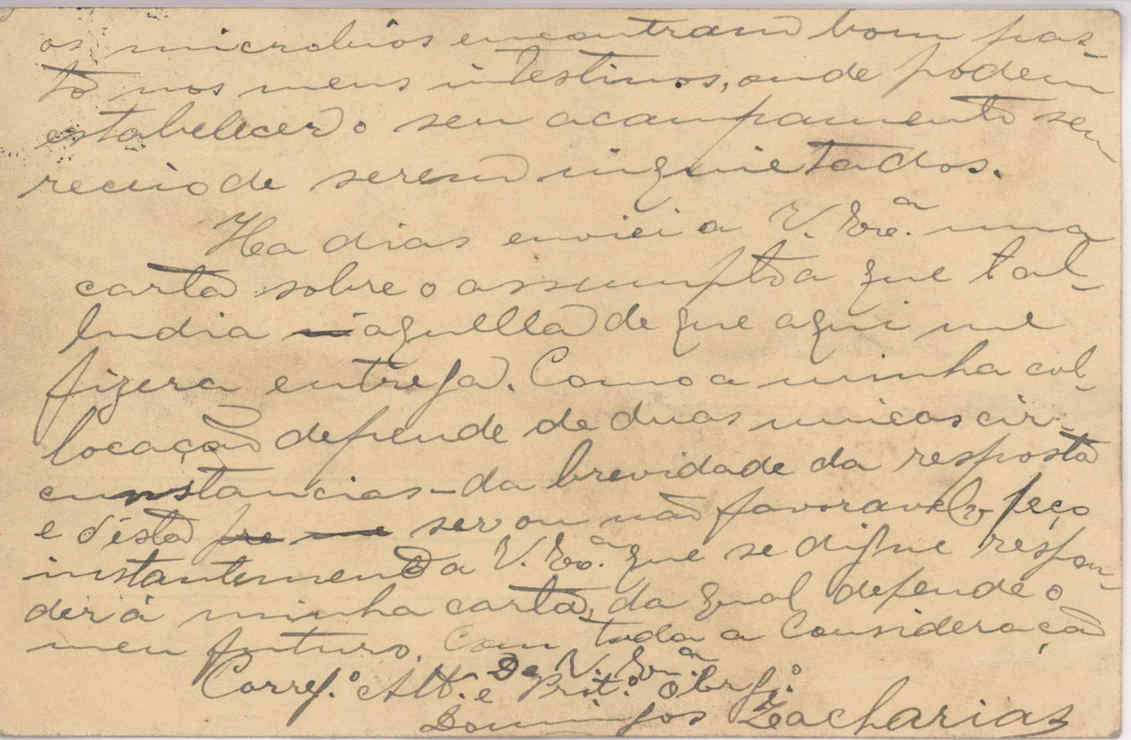 os microbios encontram bom pas-
to nos meus intestinos, onde podem
estabelecer o seu acampamento sem
receio de serem inquietados.
Ha dias enviei a V. Exª. uma
carta sobre o assumpto a que tal-
ludia aquella de que aqui me
fizera entrega. Como a minha col-
locação depende de duas unicas cir-
cunstancias - da brevidade da resposta
e d'ésta ser ou não favoravel, peço
instantemente a V. Exª. que se digne respon-
der á minha carta, da qual depende o
meu futuro. Com toda a Consideração
De V. Exª
Corref.º Att.º e Obrg.º
Domingos Zacharias